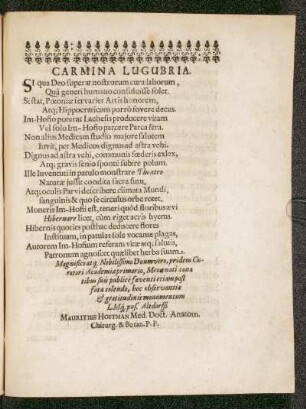 CARMINA LUGUBRIA.
SI qua Deo superat nostrorum cura laborum,
Quâ generi humano consuluisse solet.
Si stat, Pæoniæ servarier Artis honorem,
Atq; Hippocraticum porrò fovere decus.
Im-Hofio poterat Lachesis producere vitam
Vel solo Im-Hofio parcere Parca fera.
Non alius Medicam studio majore salutem
Iuvit, per Medicos dignus ad astra vehi.
Dignus ad astra vehi, communis fœderis exlex,
Atq; gravis senio sponte subire polum.
Ille Inventuti in patulo monstrare Theatro
Naturæ jussit condita sacra sinu,
Atq; oculis Parvi describere climata Mundi,
sanguinis & quo se circulus orbe rotet,
Muneris Im-Hofi est, teneri quòd floribus ævi
Hibernare licet, cùm riget acris hyems.
Hibernis quoties posthac deducere flores
Instituam, in patulas sole vocante plagas,
Autorem Im-Hofium referam vitæ atq; salutis,
Patronum agnoscet quælibet herba suum.
Magnifico atq; Nobilissimo Duumviro, pridem Cu-
ratori Academiæ primario, Mecœnati cona
tibus suis publicè faventi etiam post
fata colendo, hoc observantiæ
& gratitudinis monumentum
L.Mq; pos. Altdorfii
MAURITIUS HOFFMAN Med. Doct. Anatom.
Chirurg. & Botan. P. P.